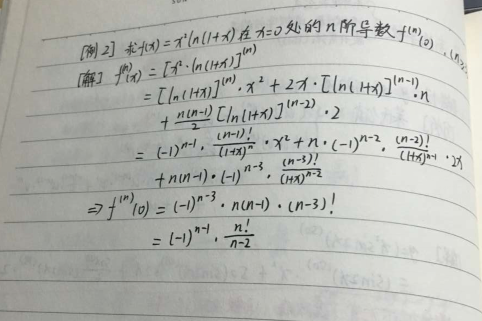 [例2] 求f(x)=x²ln(1+x)在x=0处的n阶导数f⁽ⁿ⁾(0).
[解] f⁽ⁿ⁾(x)=[x²·ln(1+x)]⁽ⁿ⁾
=[ln(1+x)]⁽ⁿ⁾·x²+2x·[ln(1+x)]⁽ⁿ⁻¹⁾·n
+n(n-1)/2[ln(1+x)]⁽ⁿ⁻²⁾·2
=(-1)ⁿ⁻¹·(n-1)!/(1+x)ⁿ·x²+n·(-1)ⁿ⁻²·(n-2)!/(1+x)ⁿ⁻¹·2x
+n(n-1)·(-1)ⁿ⁻³·(n-3)!/(1+x)ⁿ⁻²
⇒f⁽ⁿ⁾(0)=(-1)ⁿ⁻³·n(n-1)·(n-3)!
=(-1)ⁿ⁻¹·n!/(n-2)